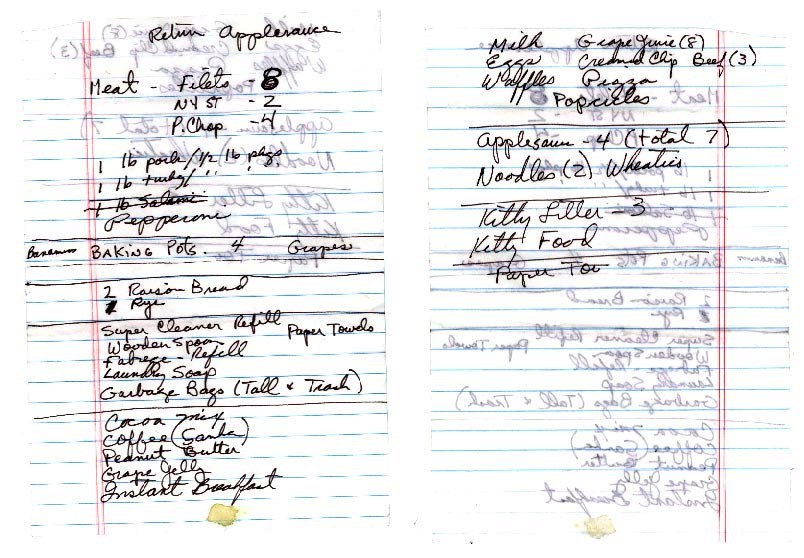 Return Applesauce
Meat - Filets - 8
NY ST - 2
P. Chop - 4
1 1 lb pork / 1/2 lb pkgs
1 1 lb turky / " "
1 1 lb Salami
Pepperoni
Bananas BAKING POTS. 4 Grapes
2 Raison Bread
Rye
Super Cleaner Refill Paper Towels
Wooden Spoon
Fabreze - Refill
Laundry Soap
Garbage Bags (Tall & Trash)
Cocoa mix
Coffee (Sanka)
Peanut Butter
Grape Jelly
Instant Breakfast
Milk Grape Juice (8)
Eggs Creamed Chip Beef (3)
Waffles Pizza
Popcicles
Applesaun - 4 (total 7)
Noodles (2) Wheaties
Kitty Litter - 3
Kitty Food
Paper Tow